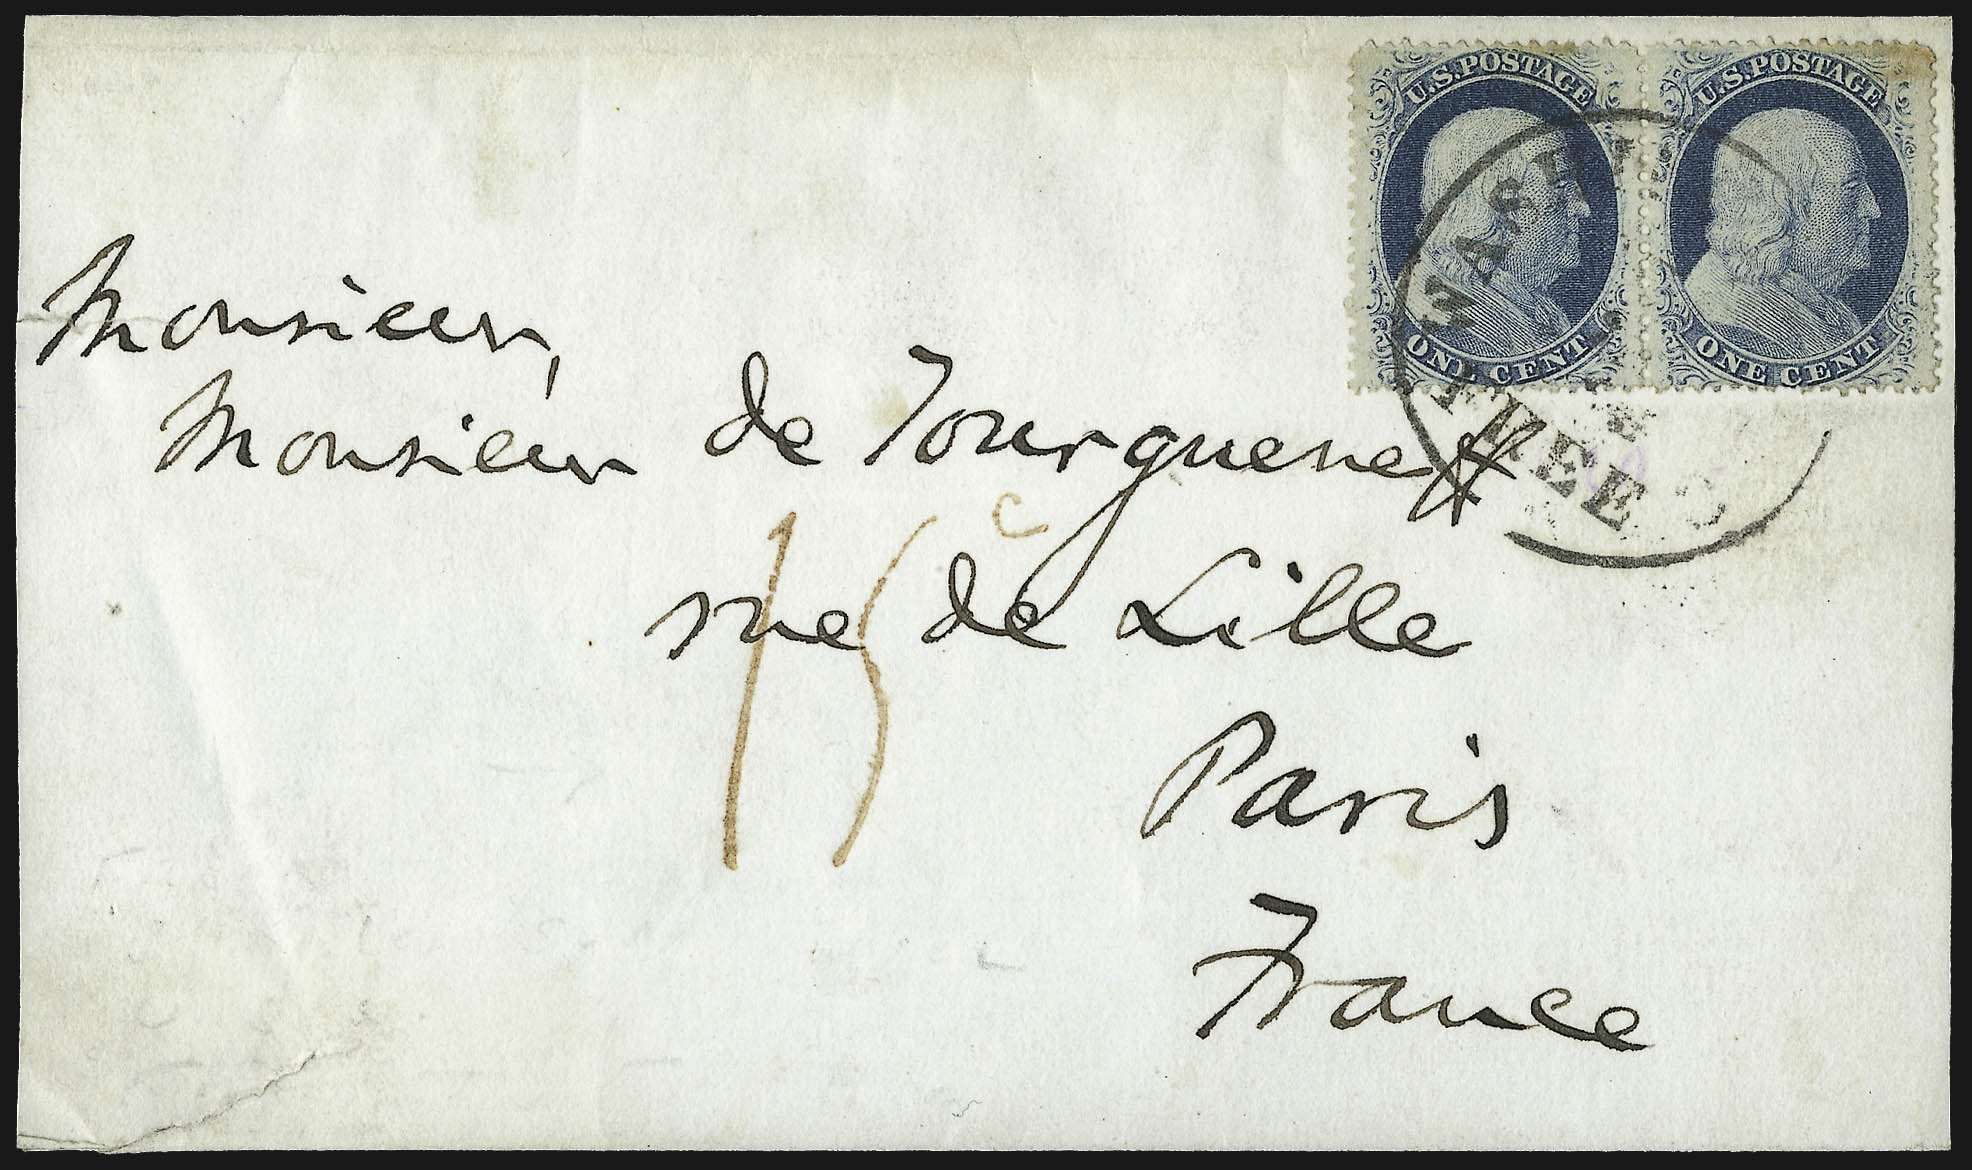 U.S. POSTAGE U.S. POSTAGE
ONE CENT ONE CENT
FREE
Monsieur,
Monsieur de Tourgueneff
15 c
rue de Lille
Paris
France